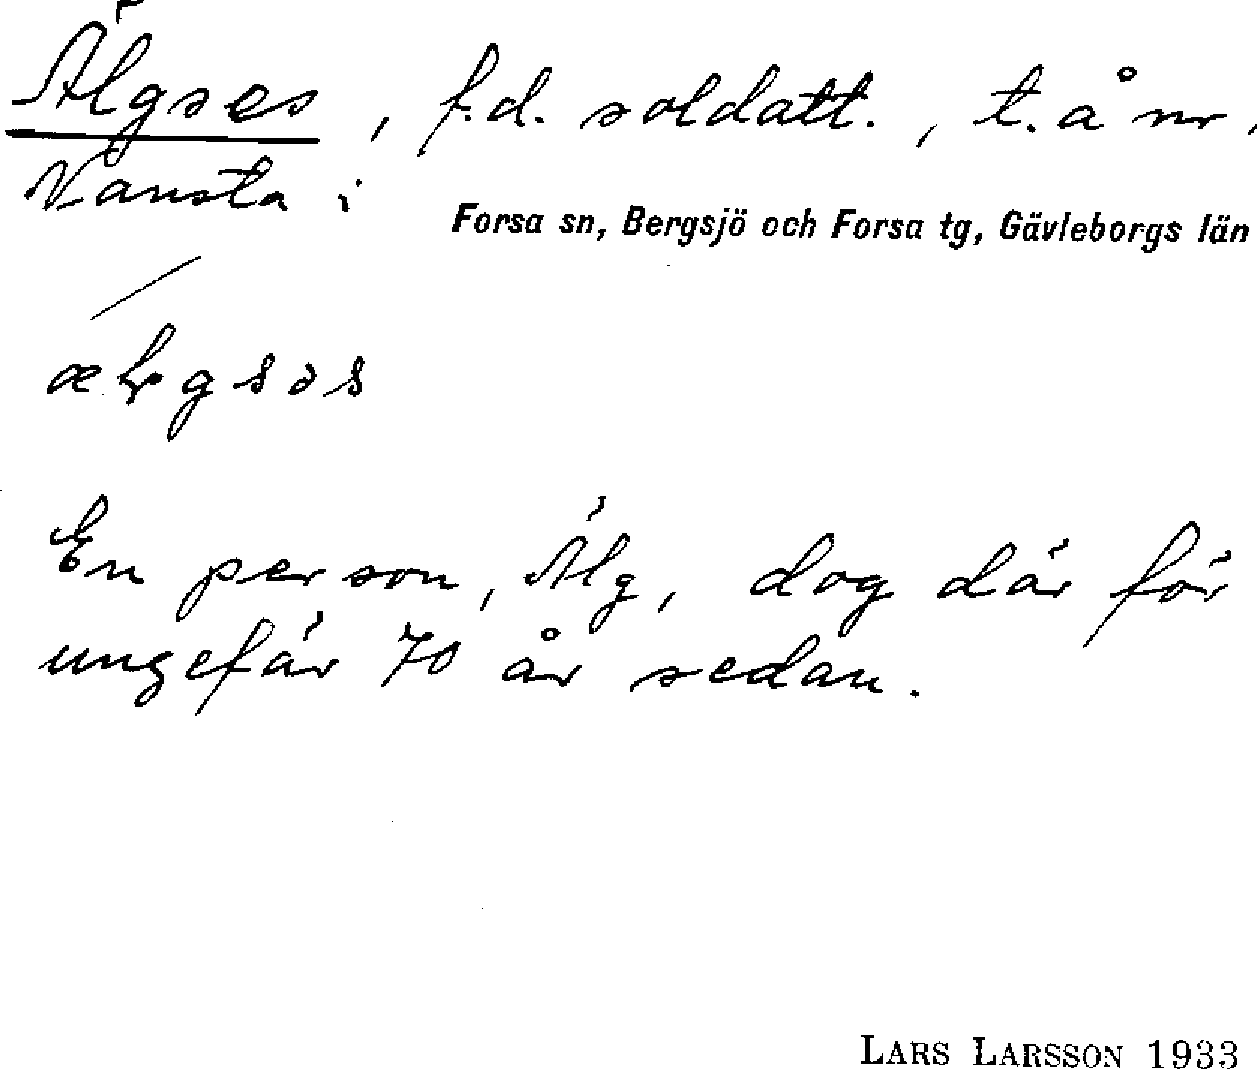 Älgses, f.d. soldatt., t. å nr.
Vansta i
Forsa sn, Bergsjö och Forsa tg, Gävleborgs län
En person, Älg, dog där för
ungefär 70 år sedan.
LARS LARSSON 1933